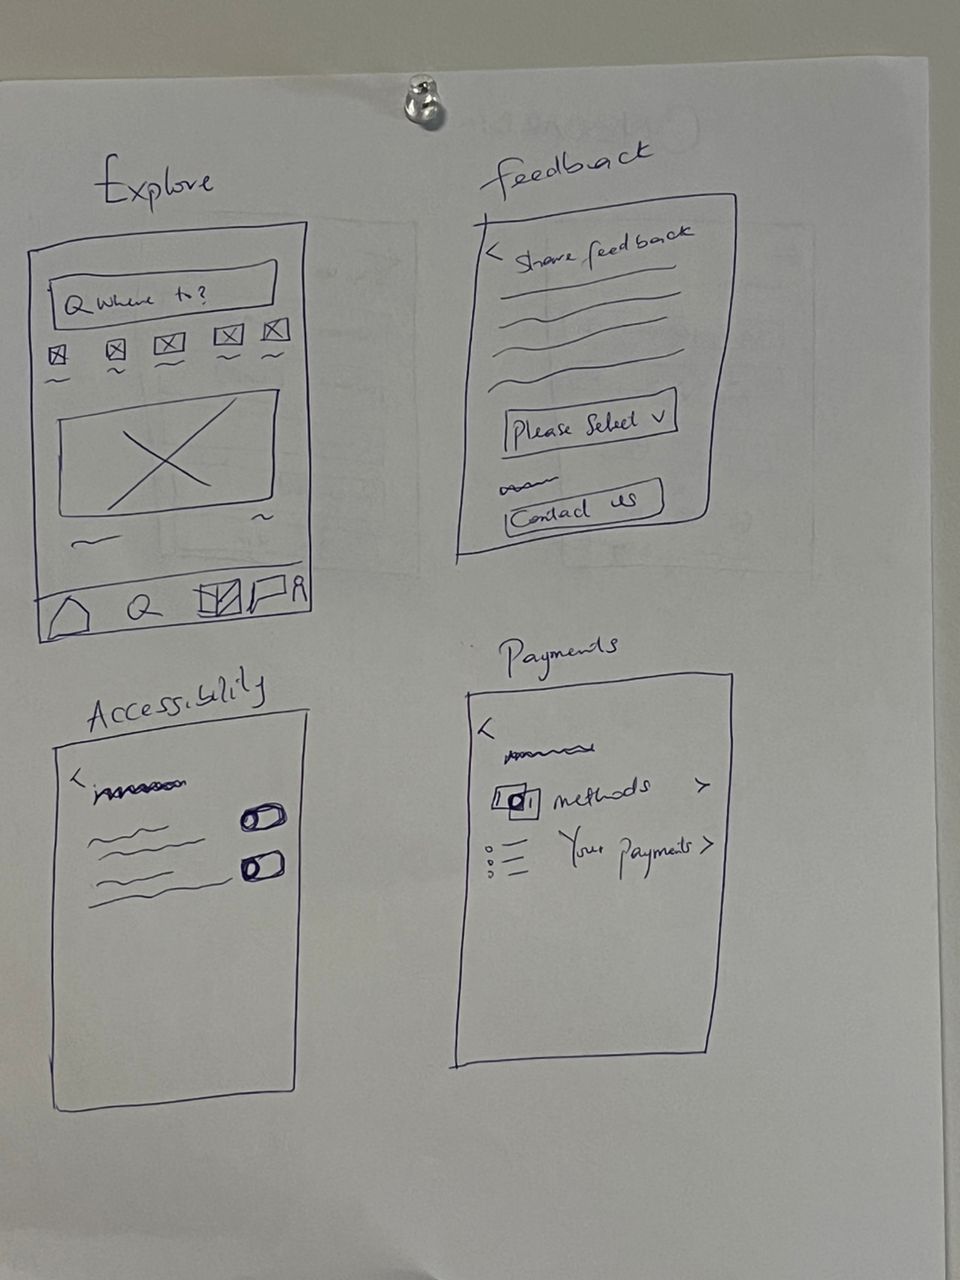 Explore
Where to?
Feedback
< Share feedback
Please Select
Contact us
Accessibility
<
Payments
<
methods >
Your payments >